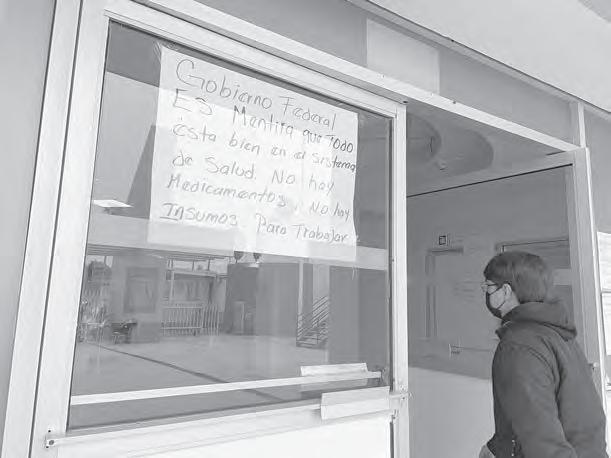 Gobierno Federal
ES Mentira que Todo
esta bien en el sistema
de Salud. No hay
Medicamentos, No hay
Insumos. Para Trabajar